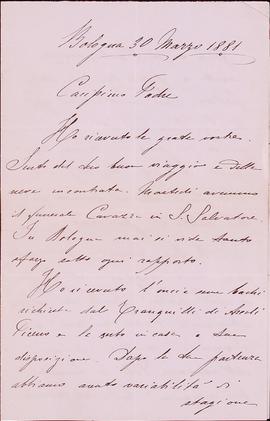 Bologna 30 Marzo 1881
Carissimo Padre
Ho ricevuto le grate vostre.
Sento del tuo buon viaggio e della
neve incontrata. Martedì avemmo
il funerale Cavazza in S. Salvatore.
In Bologna mai si vide tanto
sfarzo sotto ogni rapporto.
Ho ricevuto l'oncia seme bachi
richiesta dal Tranquilli di Ascoli
Piceno e la tengo in casa a tua
disposizione. Dopo la tua partenza
abbiamo avuto variabilità di
stagione